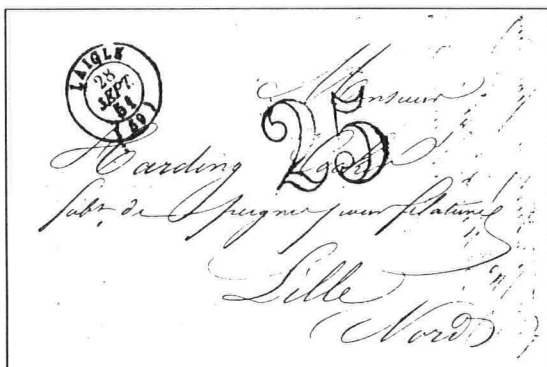 LAIGLE
28
SEPT.
51
(59)
25
Monsieur
Harding
fabt. de Peignes pour filature
Lille
(Nord)